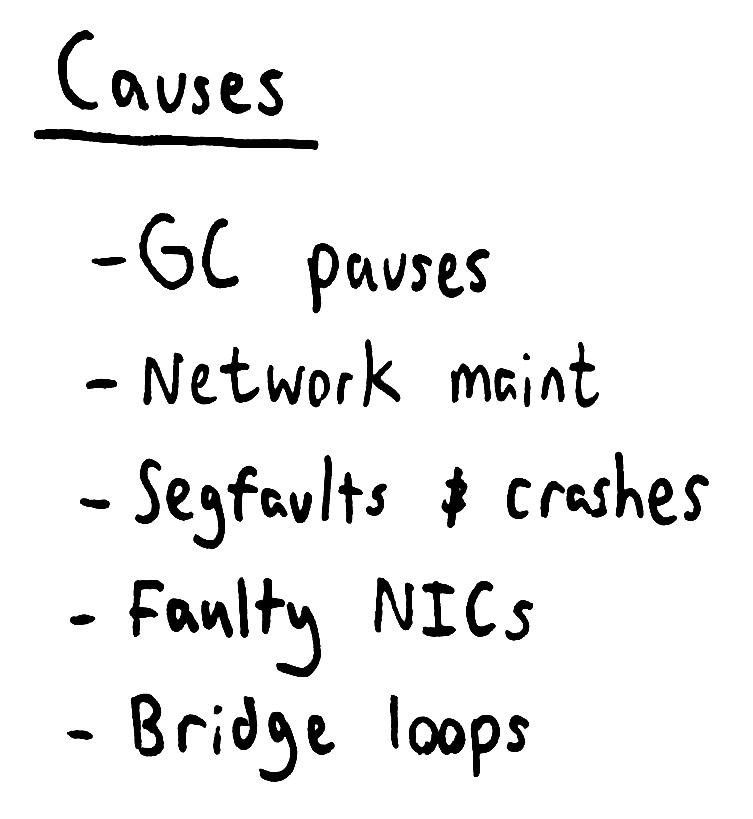 Causes
- GC pauses
- Network maint
- Segfaults & crashes
- Faulty NICs
- Bridge loops